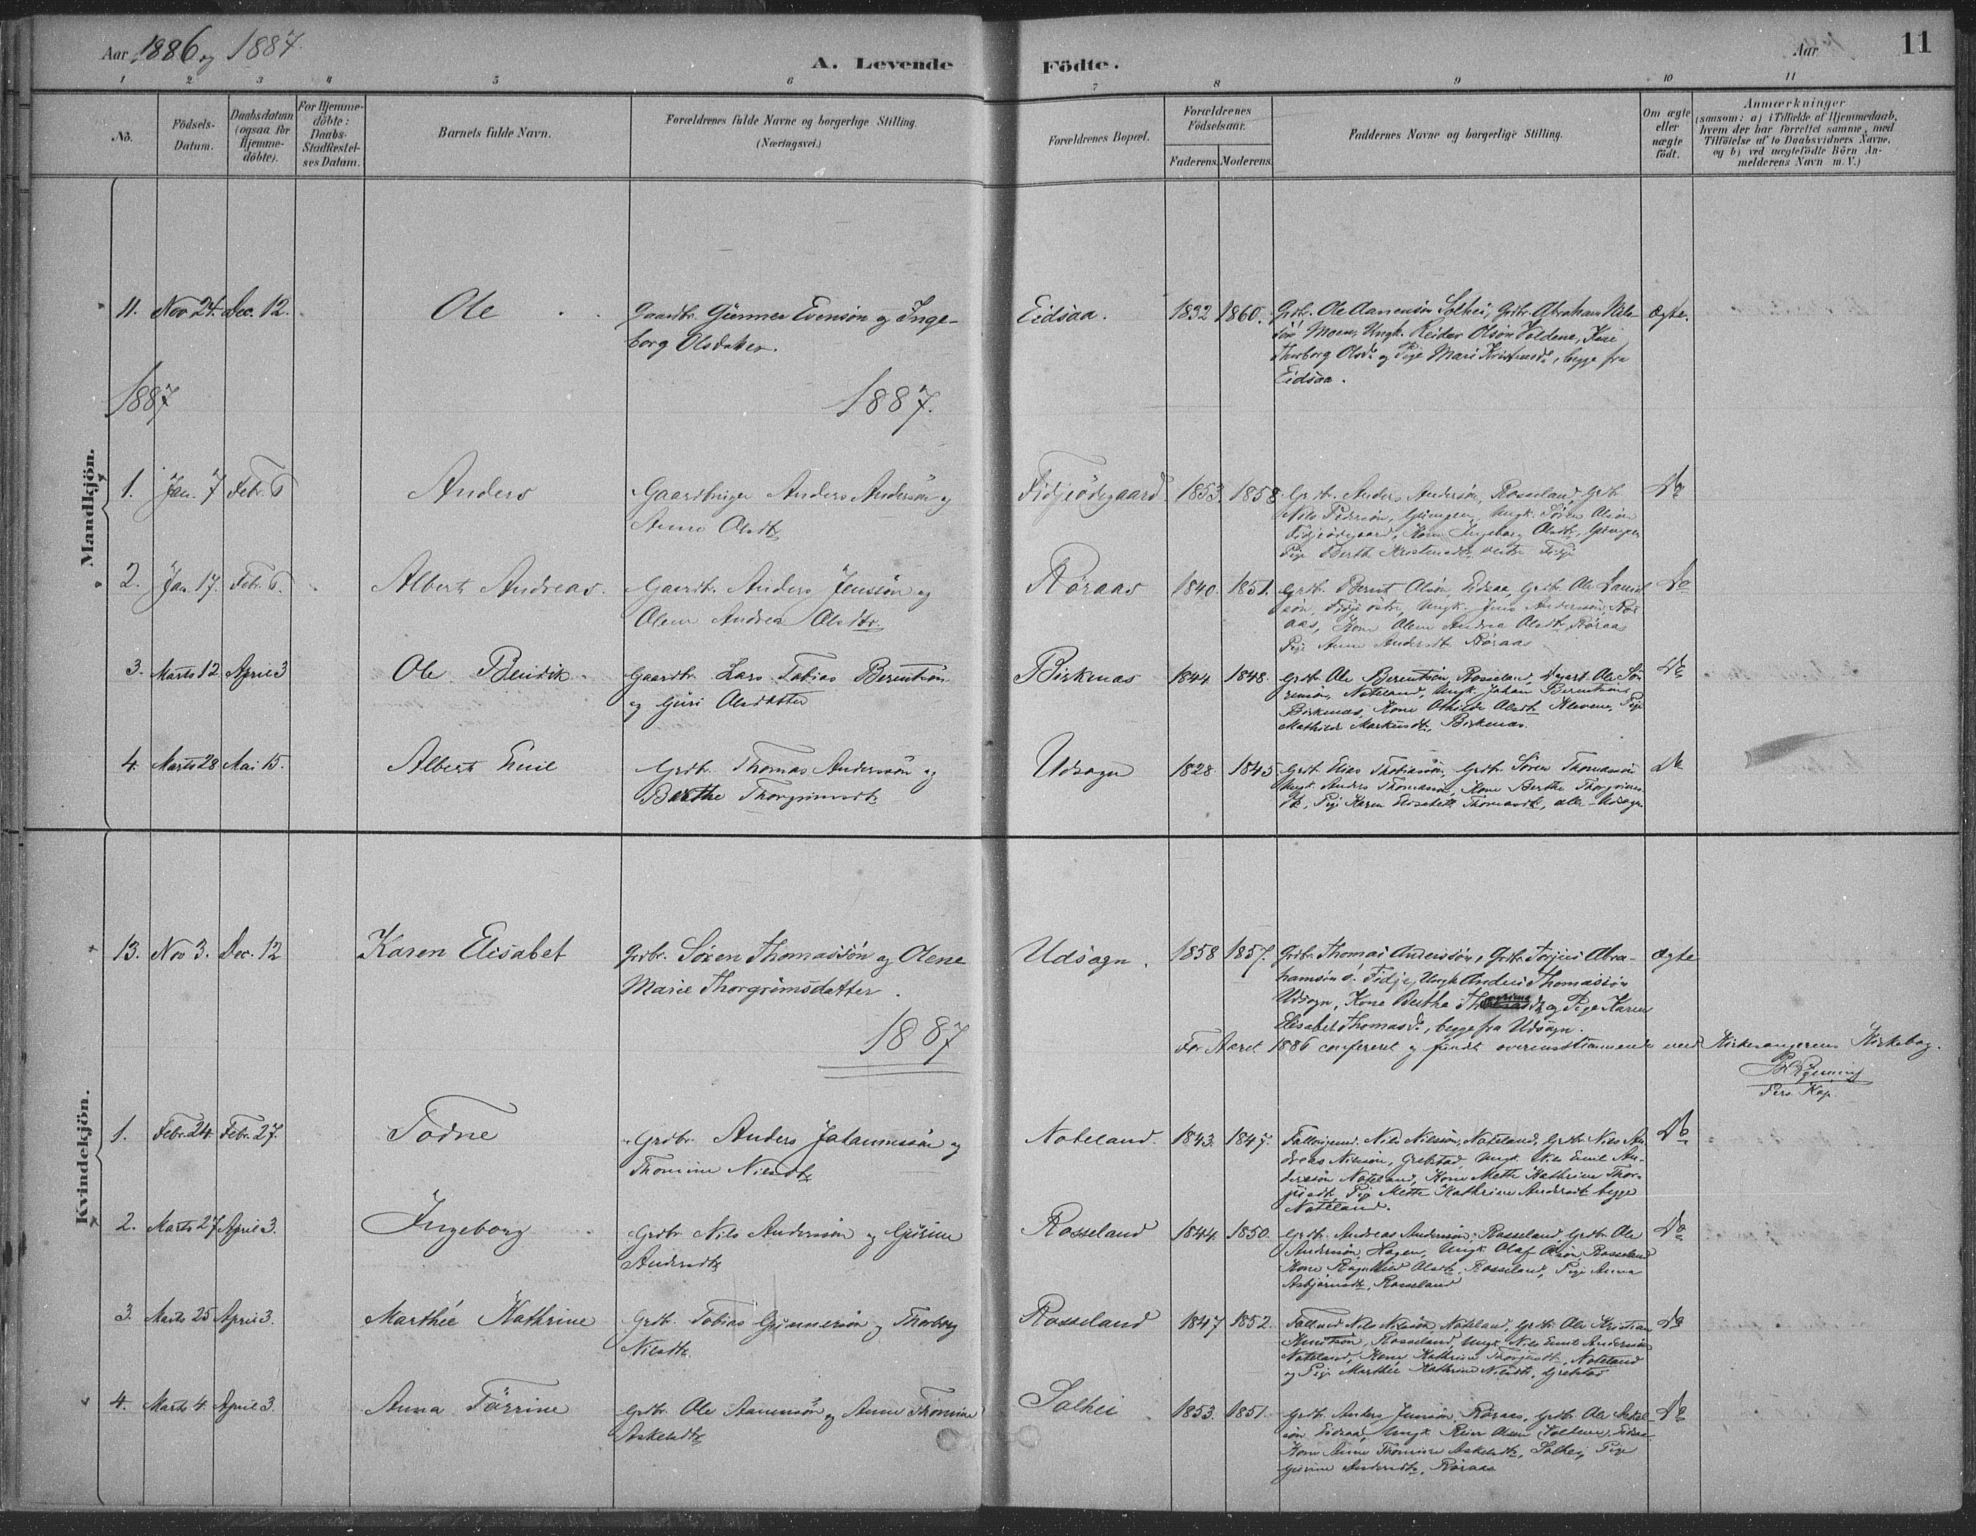 Aar 1886 og 1887.
A. Levende Födte.
Aar
11
1 2 3 4 5 6 7 8 9 10 11
No.
Födsels-
Datum.
Daabsdatum
(ogsaa for
Hjemme-
döbte).
For Hjemme-
döbte:
Daabs-
Stadfæstel-
ses Datum.
Barnets fulde Navn.
Forældrenes fulde Navne og borgerlige Stilling.
(Næringsvei.)
Forældrenes Bopæl.
Forældrenes
Födselsaar.
Faderens. Moderens.
Faddernes Navne og borgerlige Stilling.
Om ægte
eller
uægte
födt.
Anmærkninger
(saasom: a) i Tilfælde af Hjemmedaab,
hvem der har forrettet samme, med
Tilföielse af to Daabsvidners Navne,
og b) ved uægtefödte Börn An-
melderens Navn m. V.)
Mandkjön.
11. Nov 24. Dec. 12. Ole Gaardbr. Gunner Evensön og Inge-
borg Olsdatter.
Eidsaa. 1832 1860. Grbr. Ole Aanensön Solhei, Grbr. Abraham Nils-
sön Moen, Ungk. Reider Olsön Voldene, Kone
Thorborg Olsd. og Pige Mari Kristensd., begge fra
Eidsaa.
Ægte.
1887
1887.
1. Jan. 7 Febr. 6 Anders Gaardbruger Anders Andersön og
Anne Olsdtr
Fidjeødegaard. 1853. 1858. Grbr. Anders Andersön, Rosseland, Grbr.
Nils Pedersön, Ungk. Sören Olsen
Fidjeødegaard, Kone Ingeborg Olsdtr,
Pige Berth Kristensdtr vestre Fidje
Do
2. Jan. 17. Febr. 6. Albert Andreas. Gaardbr. Anders Jenssön og
Olene Andrea Olsdtr.
Røraas 1840. 1851. Grbr. Berent Olsön, Eidsaa, Grbr. Ole
sön, Fidje østre, Ungk. Jens Andersön, Rør-
aas, Kone Olene Andrea Olsdtr, Røraas
Pige Anne Andersdtr Røraas
Do
3. Marts 12 April 3 Ole Bendik. Gaardbr. Lars Tobias Berentsön
og Guri Olsdatter
Birkenæs 1844 1848. Grbr. Ole Berentsön, Rosseland, Ole Sö-
rensön, Noteland, Ungk. Johan Berentsön
Birkenæs, Kone Othilde Olsdtr Klevene, Pige
Mathilde Markusdtr, Birkenæs.
Do
4. Marts 28 Mai 15. Albert Emil Grdbr. Thomas Andersön og
Berthe Thorgrimsdtr
Udsogn 1828 1845 Grbr. Elias Thobiassön, Grbr. Sören Thomassön
Ungk. Anders Thomassön, Kone Berthe Thorgrims-
dtr, Pige Karen Elisabeth Thomasdtr, alle Udsogn
Do
Kvindekjön.
13. Nov 3. Dec. 12 Karen Elisabet Grdbr. Sören Thomassön og Olene
Marie Thorgrimsdatter.
Udsogn. 1858 1857. Grbr. Thomas Anderssön, Grbr. Torjus Abra-
hamsön ö. Fidje, Ungk Anders Thomassön
Udsogn, Kone Berthe og Pige Karen
Elisabet Thomasd., begge fra Udsogn.
Ægte
For Aaret 1886 confereret og fundet overensstemmende med Kirkesangerens Kirkebog.
Pers. Kap.
1887
1. Febr. 24. Febr. 27. Todne Grdbr. Anders Johannessön og
Thomine Nilsdtr
Noteland. 1843. 1847. Nils Nilssön, Noteland, Grbr. Nils An-
dreas Nilssön, Grebstad, Ungk. Nils Emil An-
dersön Noteland, Kone Mette Kathrine Thor-
Pige Mette Kathrine Andersdtr begge
Noteland.
Do
2. Marts 27 April 3. Ingeborg Grdbr Nils Andersön og Gurine
Andersdtr
Rosseland 1844. 1850. Grbr. Andreas Andersön, Rosseland, Grdbr. Ole
Andersön, Hagen, Ungk. Olaf Olsön, Rosseland
Kone Ragnhild Olsdtr, Rosseland, Pige Anna
Asbjörnsdtr, Rosseland
Do
3. Marts 25 April 3. Marthée Kathrine Grdbr. Tobias Gunnersön og Thorborg
Nilsdtr
Rosseland 1847 1852. Nils Nilssön Noteland, Grdbr. Ole Kristian
Knutsön, Rosseland, Ungk. Nils Emil Andersön
Noteland, Kone Kathrine Noteland
og Pige Marthée Kathrine Nilsdtr, Grebstad
Do
4. Marts 4. April 3. Anna Törrine Grdbr. Ole Aanensön og Anne Thomine
Askelsdtr
Solhei 1853. 1851. Grdbr. Anders Jenssön, Røraas, Grdbr. Ole Askel-
sön Eidsaa, Ungk. Reier Olsen Voldene, Eidsaa
Kone Anne Thomine Askelsdtr, Solhei, Pige
Gurine Andersdtr, Røraas
Do